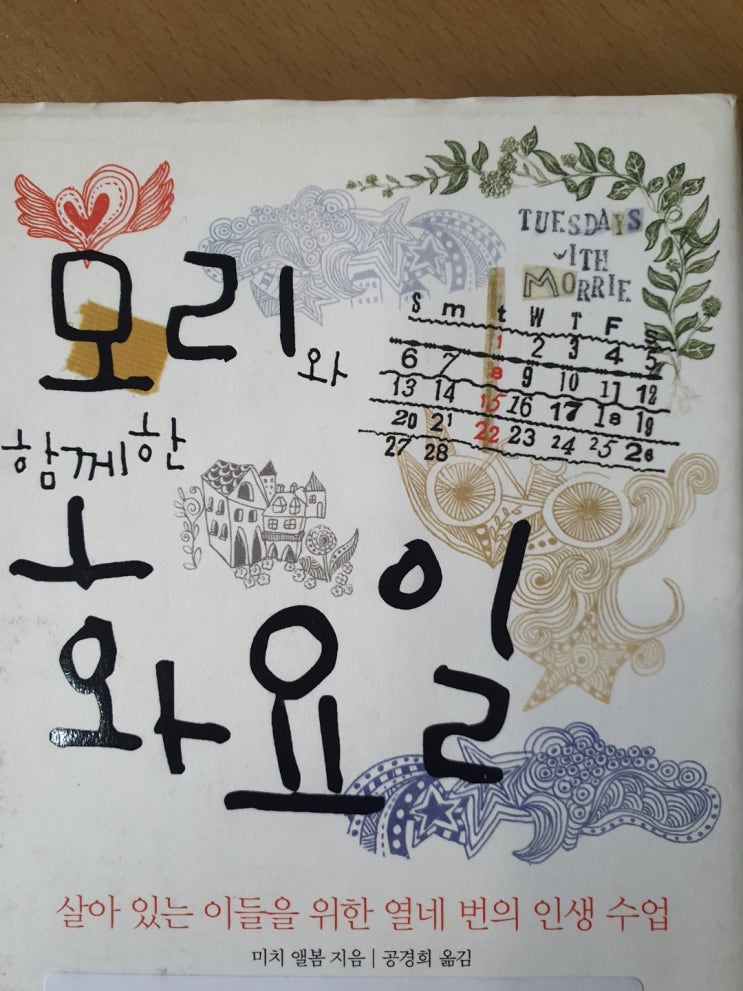 모리와
함께한
화요일
TUESDAYS
WITH
MORRIE
S m t W T F S
1 2 3 4 5
6 7 8 9 10 11 12
13 14 15 16 17 18 19
20 21 22 23 24 25 26
27 28
살아 있는 이들을 위한 열네 번의 인생 수업
미치 앨봄 지음 | 공경희 옮김